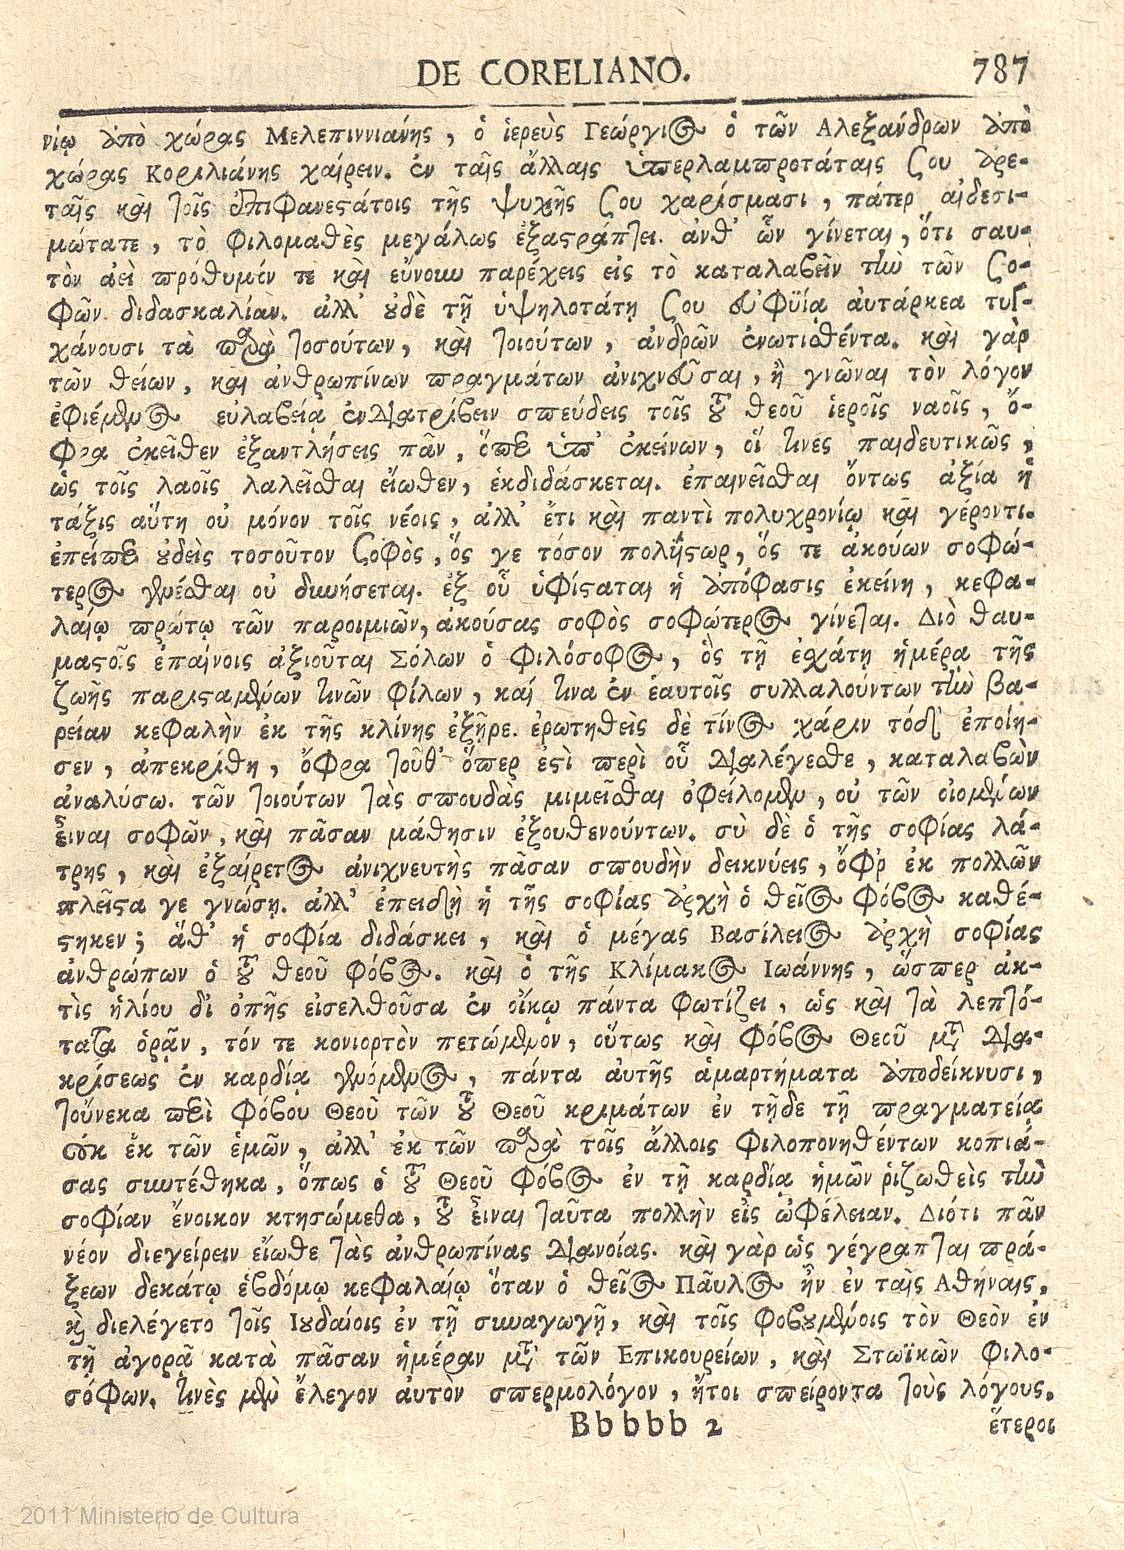 DE CORELIANO. 787
νίῳ ἀπὸ χώρας Μελεπιννιαίνης, ὁ ἱερεὺς Γεώργιος ὁ τῶν Αλεξαίνδρων ἀπὸ
χώρας Κοριλιάνης χαίρειν. ἐν ταῖς ἄλλαις ὑπερλαμπροτάταις σου ἀρε-
ταῖς καὶ τοῖς ἐπιφανεστάτοις τῆς ψυχῆς σου χαρίσμασι, πάπερ αἰδεσι-
μώτατε, τὸ φιλομαθὲς μεγάλως ἐξαστράπτει. ἀνθ' ὧν γίνεται, ὅτι σαυ-
τὸν ἀεὶ πρόθυμόν τε καὶ εὔνουν παρέχεις εἰς τὸ καταλαβεῖν τὴν τῶν σο-
φῶν διδασκαλίαν. ἀλλ' οὐδὲ τῇ ὑψηλοτάτῃ σου εὐφυΐᾳ αὐτάρκεα τυγ-
χάνουσι τὰ παρὰ τοσούτων, καὶ τοιούτων, ἀνδρῶν ἐνωτισθέντα. καὶ γὰρ
τῶν θείων, καὶ ἀνθρωπίνων πραγμάτων ἀνιχνεῦσαι, ἢ γνῶναι τὸν λόγον
ἐφιέμενος εὐλαβείᾳ ἐνδιατρίβειν σπεύδεις τοῖς τοῦ θεοῦ ἱεροῖς ναοῖς, ὄ-
φρα ἐκεῖθεν ἐξαντλήσεις πᾶν, ὅπερ ὑπ' ἐκείνων, οἵ τινες παιδευτικῶς,
ὡς τοῖς λαοῖς λαλεῖσθαι εἴωθεν, ἐκδιδάσκεται. ἐπαινεῖσθαι ὄντως ἀξία ἡ
τάξις αὕτη οὐ μόνον τοῖς νέοις, ἀλλ' ἔτι καὶ παντὶ πολυχρονίῳ καὶ γέροντι.
ἐπείπερ οὐδεὶς τοσοῦτον σοφὸς, ὅς γε τόσον πολυΐστωρ, ὅς τε ἀκούων σοφώ-
τερος γενέσθαι οὐ δυνήσεται. ἐξ οὗ ὑφίσταται ἡ ἀπόφασις ἐκείνη, κεφα-
λαίῳ πρώτῳ τῶν παροιμιῶν, ἀκούσας σοφὸς σοφώτερος γίνεται. Διὸ θαυ-
μαστοῖς ἐπαίνοις ἀξιοῦται Σόλων ὁ φιλόσοφος, ὃς τῇ ἐσχάτῃ ἡμέρᾳ τῆς
ζωῆς παρισταμένων τινῶν φίλων, καί τινα ἐν ἑαυτοῖς συλλαλούντων τὴν βα-
ρείαν κεφαλὴν ἐκ τῆς κλίνης ἐξῆρε. ἐρωτηθεὶς δὲ τίνος χάριν τόδε ἐποίη-
σεν, ἀπεκρίθη, ὄφρα τοῦθ' ὅπερ ἐστὶ περὶ οὗ διαλέγεσθε, καταλαβὼν
ἀναλύσω. τῶν τοιούτων τὰς σπουδὰς μιμεῖσθαι ὀφείλομεν, οὐ τῶν οἰομένων
εἶναι σοφῶν, καὶ πᾶσαν μάθησιν ἐξουθενούντων. σὺ δὲ ὁ τῆς σοφίας λά-
τρης, καὶ ἐξαίρετος ἀνιχνευτὴς πᾶσαν σπουδὴν δεικνύεις, ὄφρ' ἐκ πολλῶν
πλεῖστα γε γνώσῃ. ἀλλ' ἐπειδὴ ἡ τῆς σοφίας ἀρχὴ ὁ θεῖος φόβος καθέ-
στηκεν; ἅθ' ἡ σοφία διδάσκει, καὶ ὁ μέγας Βασίλειος ἀρχὴ σοφίας
ἀνθρώπων ὁ τοῦ θεοῦ φόβος. καὶ ὁ τῆς Κλίμακος Ιωάννης, ὥσπερ ἀκ-
τὶς ἡλίου δι' ὀπῆς εἰσελθοῦσα ἐν οἴκῳ πάντα φωτίζει, ὡς καὶ τὰ λεπτό-
τατα ὁρᾷν, τόν τε κονιορτὸν πετώμενον, οὕτως καὶ φόβος Θεοῦ μετὰ δια-
κρίσεως ἐν καρδίᾳ γενόμενος, πάντα αὐτῆς ἁμαρτήματα ἀποδείκνυσι,
τοὔνεκα περὶ φόβου Θεοῦ τῶν τοῦ Θεοῦ κριμάτων ἐν τῇδε τῇ πραγματείᾳ
οὐκ ἐκ τῶν ἐμῶν, ἀλλ' ἐκ τῶν παρὰ τοῖς ἄλλοις φιλοπονηθέντων κοπιά-
σας συντέθηκα, ὅπως ὁ τοῦ Θεοῦ φόβος ἐν τῇ καρδίᾳ ἡμῶν ῥιζωθεὶς τὴν
σοφίαν ἔνοικον κτησώμεθα, τοῦ εἶναι ταῦτα πολλὴν εἰς ὠφέλειαν. Διότι πᾶν
νέον διεγείρειν εἴωθε τὰς ἀνθρωπίνας διανοίας. καὶ γὰρ ὡς γέγραπται πρά-
ξεων δεκάτῳ ἑβδόμῳ κεφαλαίῳ ὅταν ὁ θεῖος Παῦλος ἦν ἐν ταῖς Αθήναις,
καὶ διελέγετο τοῖς Ιουδαίοις ἐν τῇ συναγωγῇ, καὶ τοῖς φοβουμένοις τὸν Θεὸν ἐν
τῇ ἀγορᾷ κατὰ πᾶσαν ἡμέραν μετὰ τῶν Επικουρείων, καὶ Στωϊκῶν φιλο-
σόφων. τινὲς μὲν ἔλεγον αὐτὸν σπερμολόγον, ἤτοι σπείροντα τοὺς λόγους.
Bbbbb 2 ἕτεροι
2011 Ministerio de Cultura